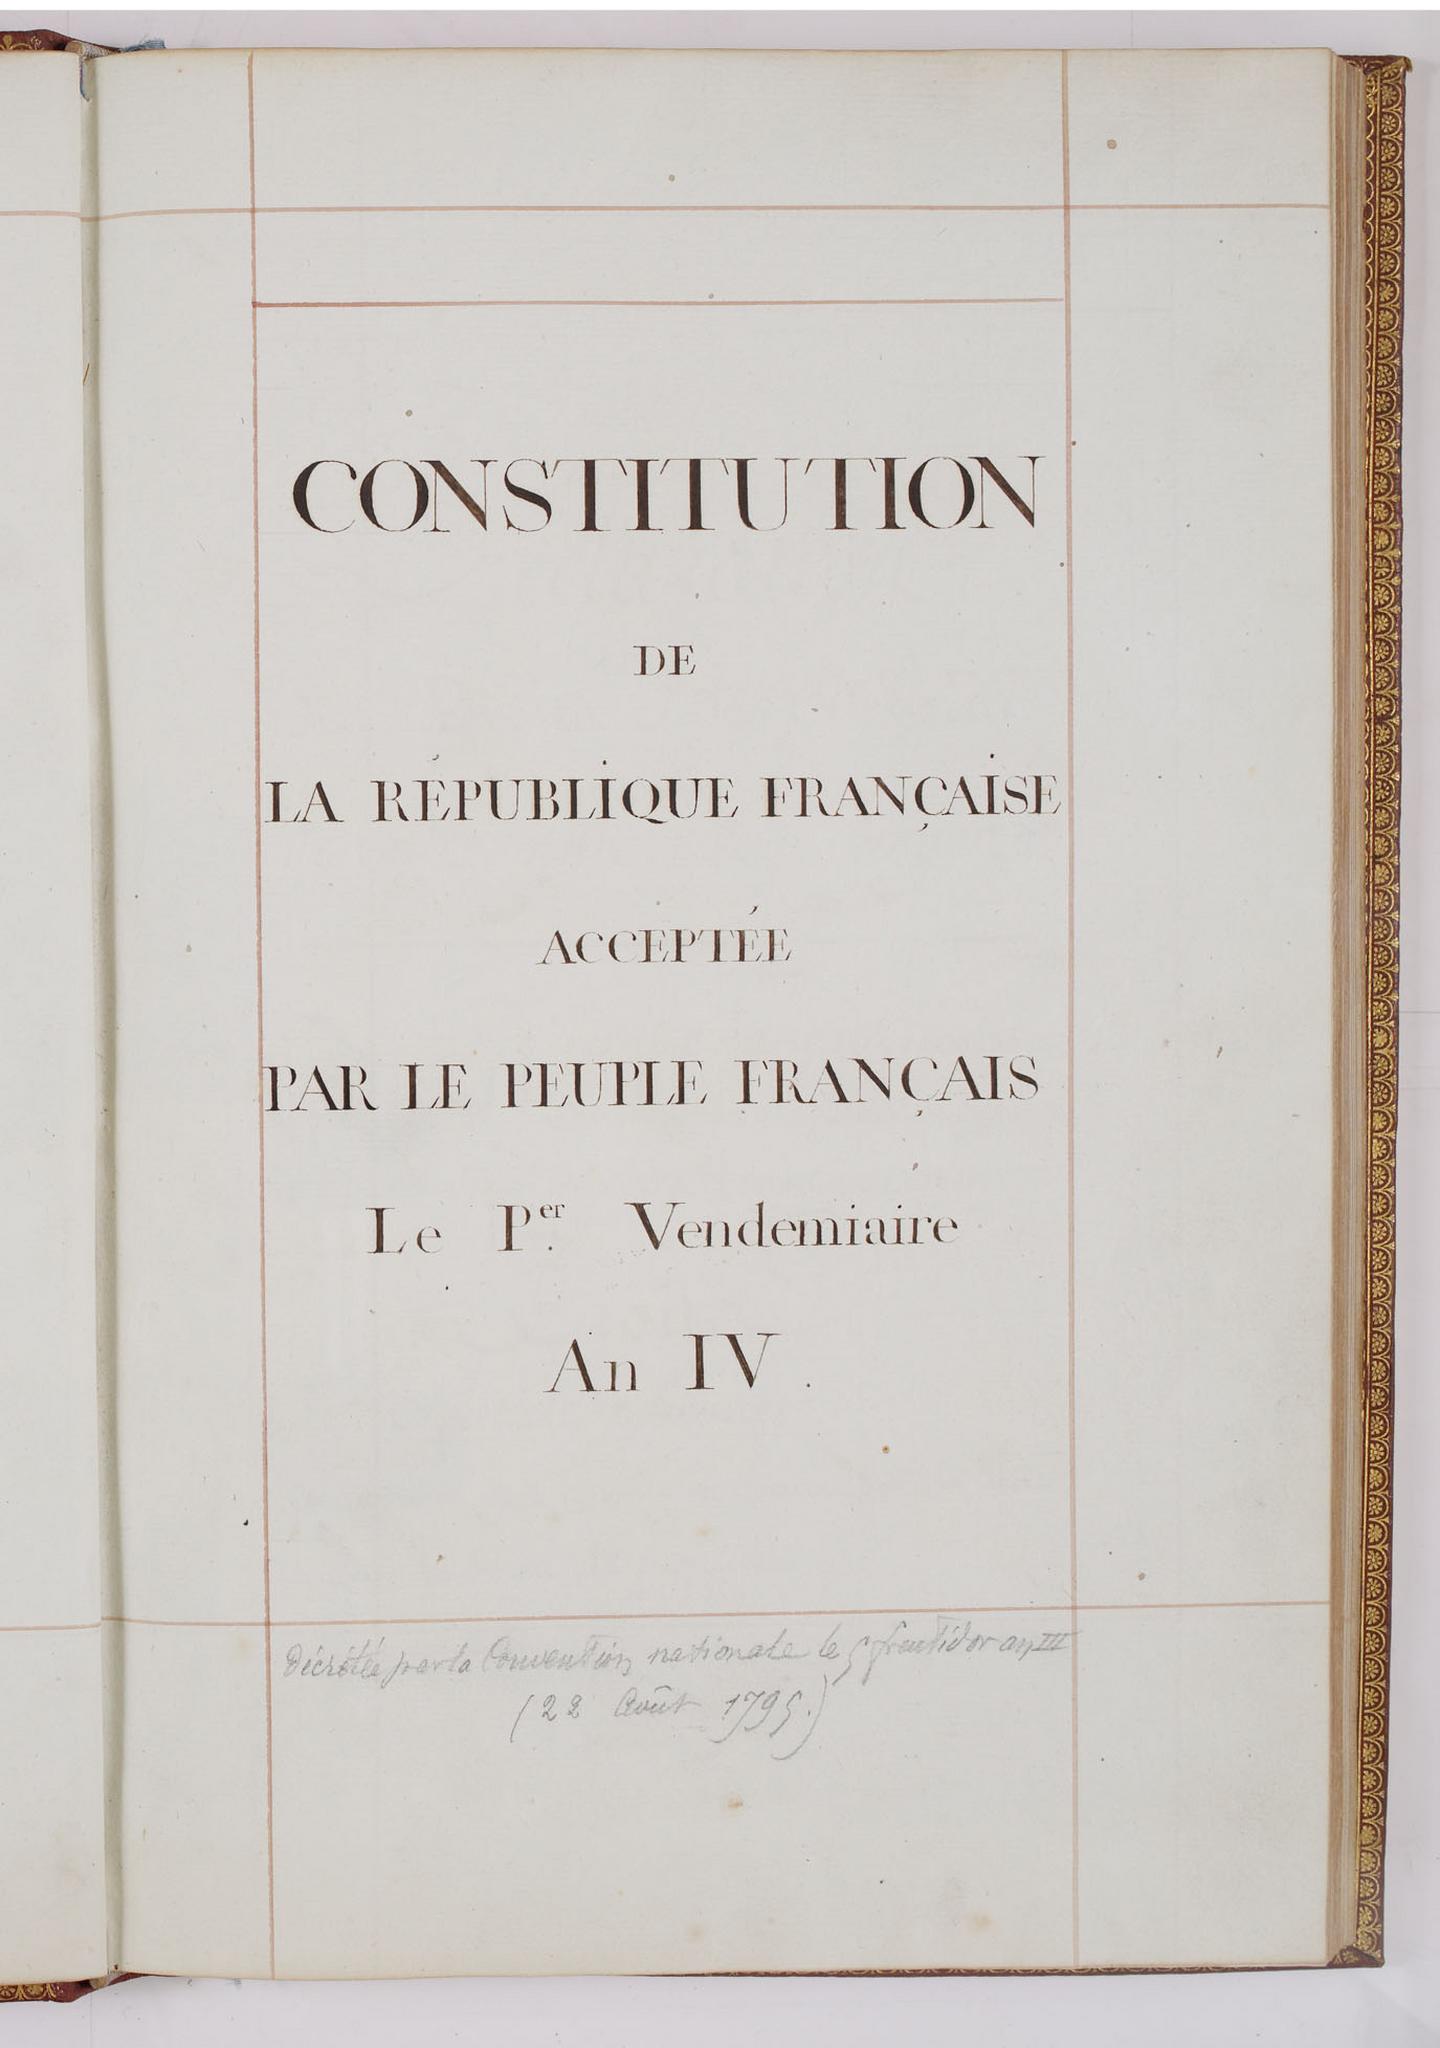 CONSTITUTION
DE
LA RÉPUBLIQUE FRANÇAISE
ACCEPTÉE
PAR LE PEUPLE FRANÇAIS
Le P.er Vendemiaire
An IV.
Décrétée par la Convention nationale le 5 fructidor an III
(22 Août 1795.)